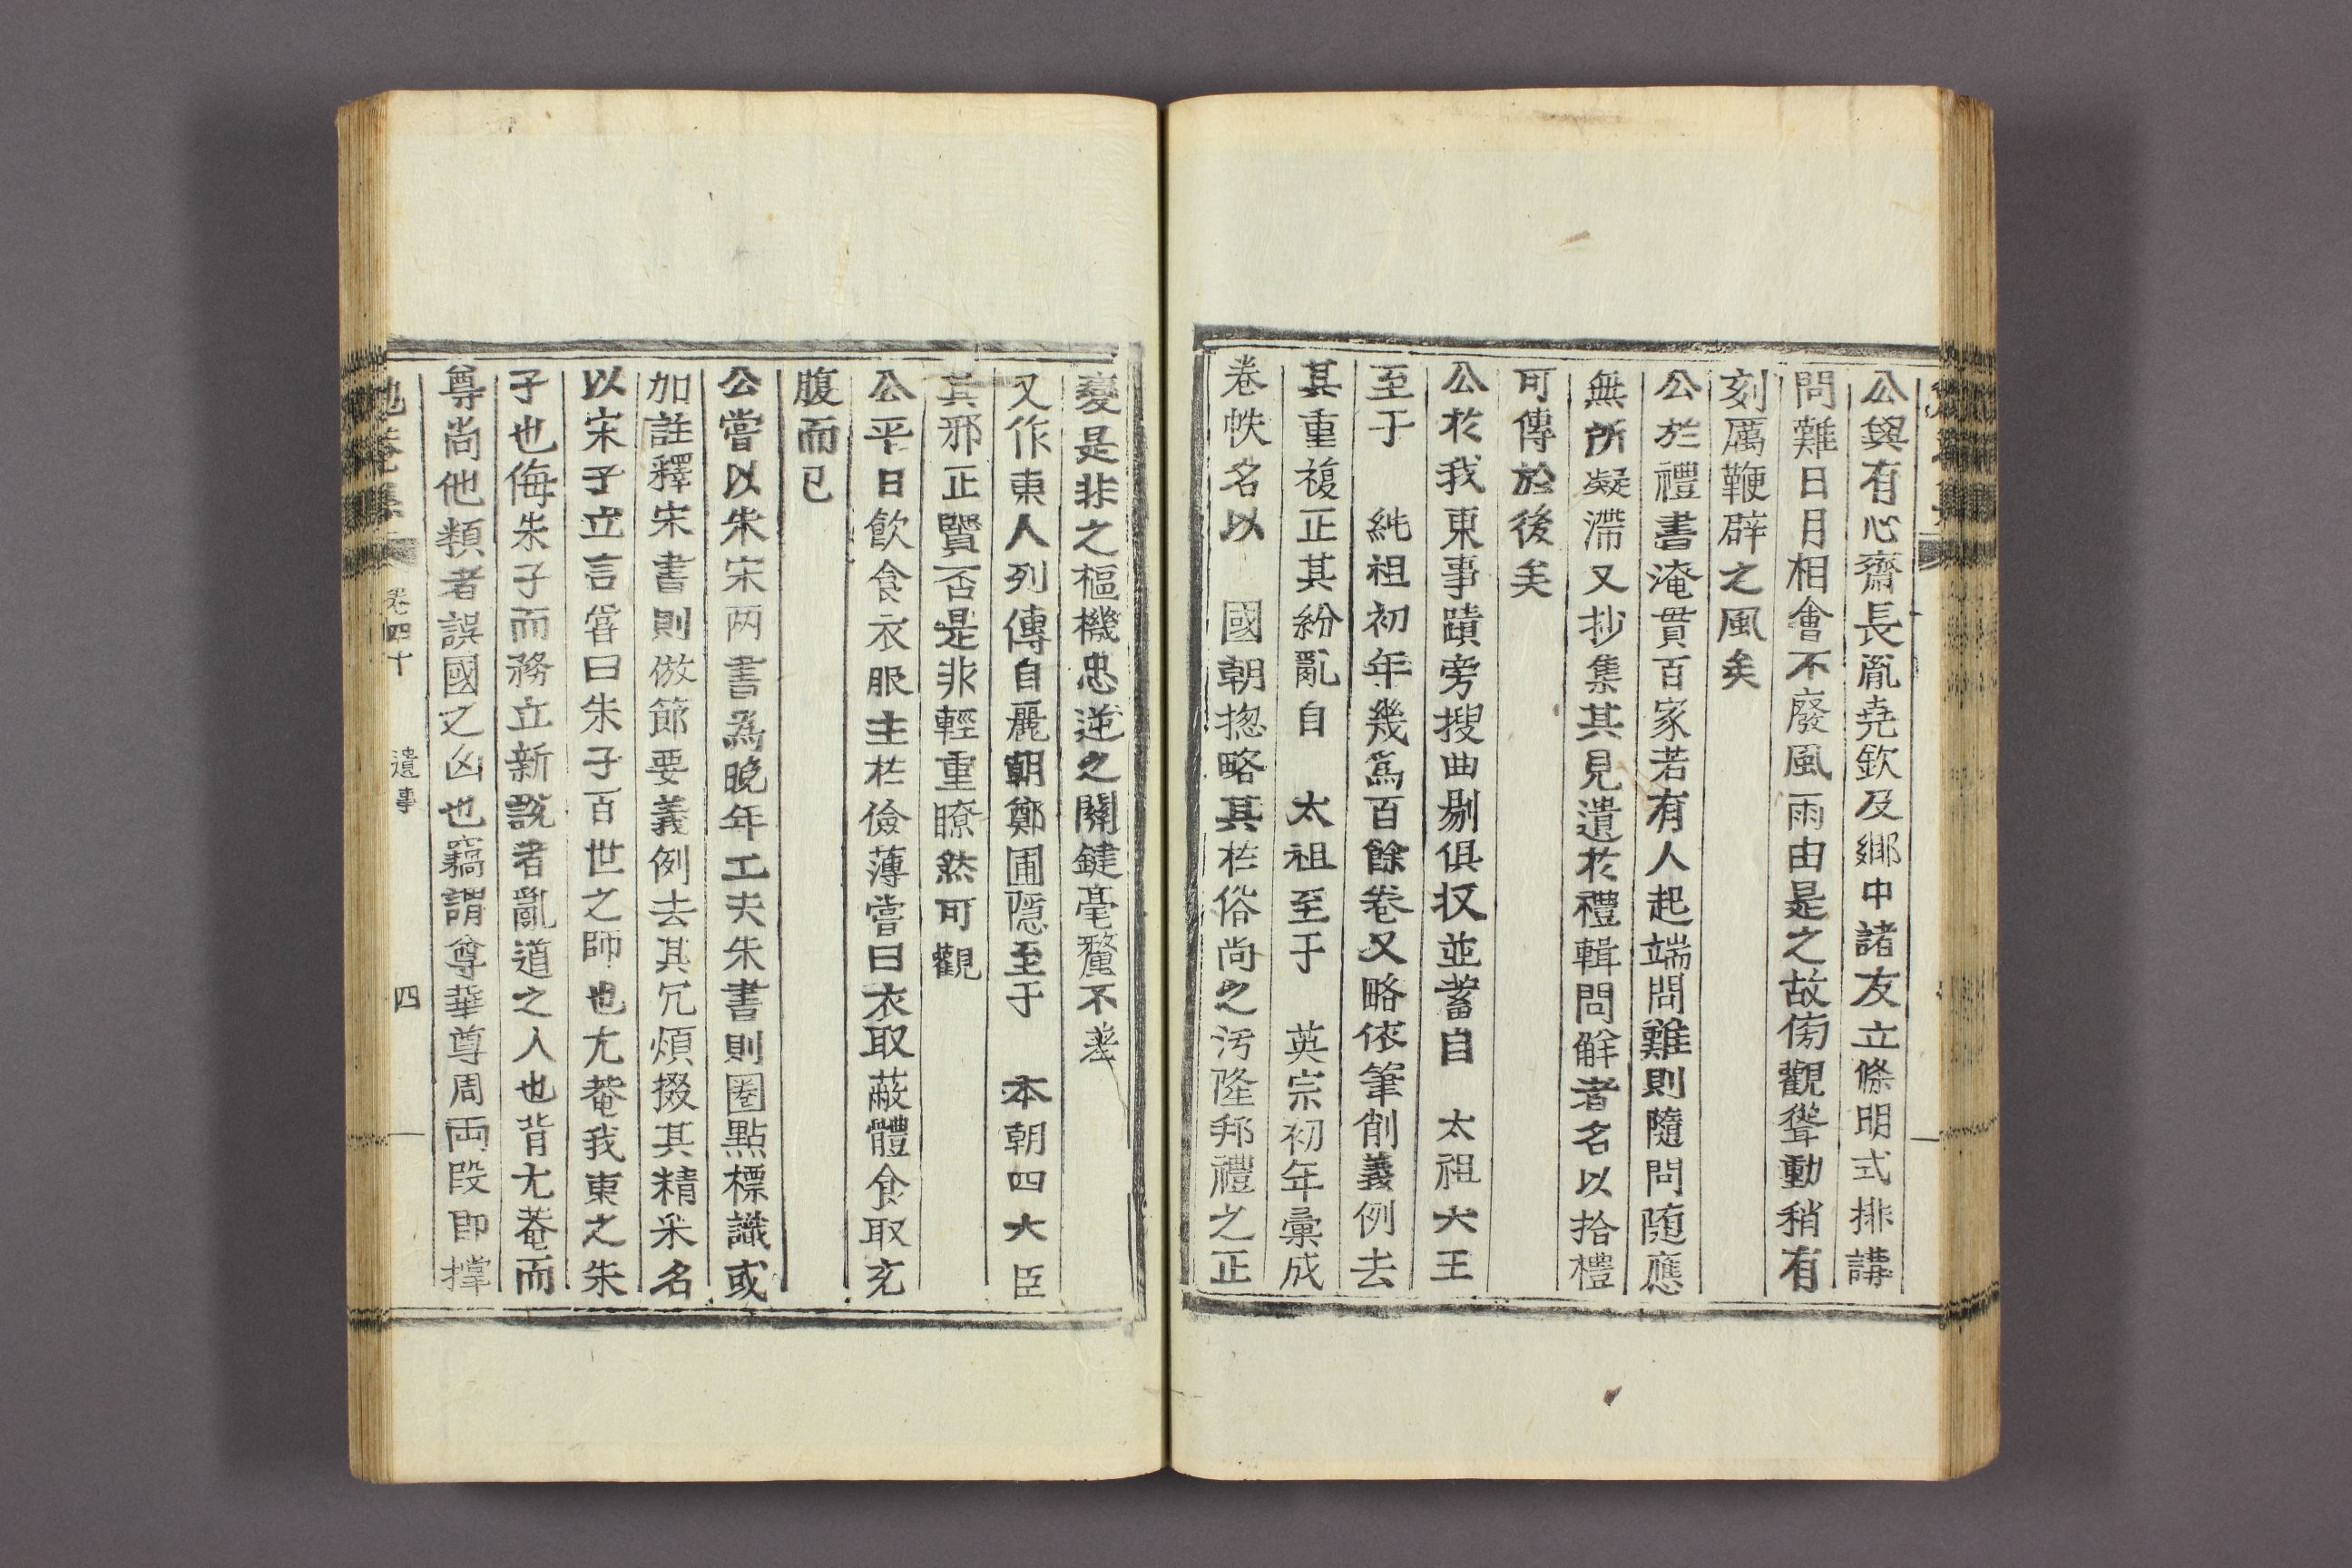 公與有心齋長胤堯欽及鄕中諸友立條明式排講
問難日月相會不廢風雨由是之故傍觀聳動稍有
刻厲鞭辟之風矣
公於禮書淹貫百家若有人起端問難則隨問随應
無所凝滯又抄集其見遺於禮輯問觧者名以拾禮
可傳於後矣
公於我東事蹟旁搜曲剔俱収並蓄自 太祖大王
至于 純祖初年幾爲百餘卷又略依筆削義例去
其重複正其紛亂自 太祖至于 英宗初年彙成
卷帙名以 國朝揔略其於俗尚之汚隆邦禮之正
變是非之樞機忠逆之關鍵毫釐不差
又作東人列傳自麗朝鄭圃隱至于 本朝四大臣
其邪正賢否是非輕重瞭然可觀
公平日飮食衣服主於儉薄嘗曰衣取蔽體食取充
腹而已
公嘗以朱宋两書爲晩年工夫朱書則圈點標識或
加註釋宋書則倣節要義例去其冗煩掇其精采名
以宋子立言嘗曰朱子百世之師也尤菴我東之朱
子也侮朱子而務立新說者亂道之人也背尤菴而
尊尚他類者誤國之凶也竊謂尊華尊周両段即撑
卷四十 遺事 四